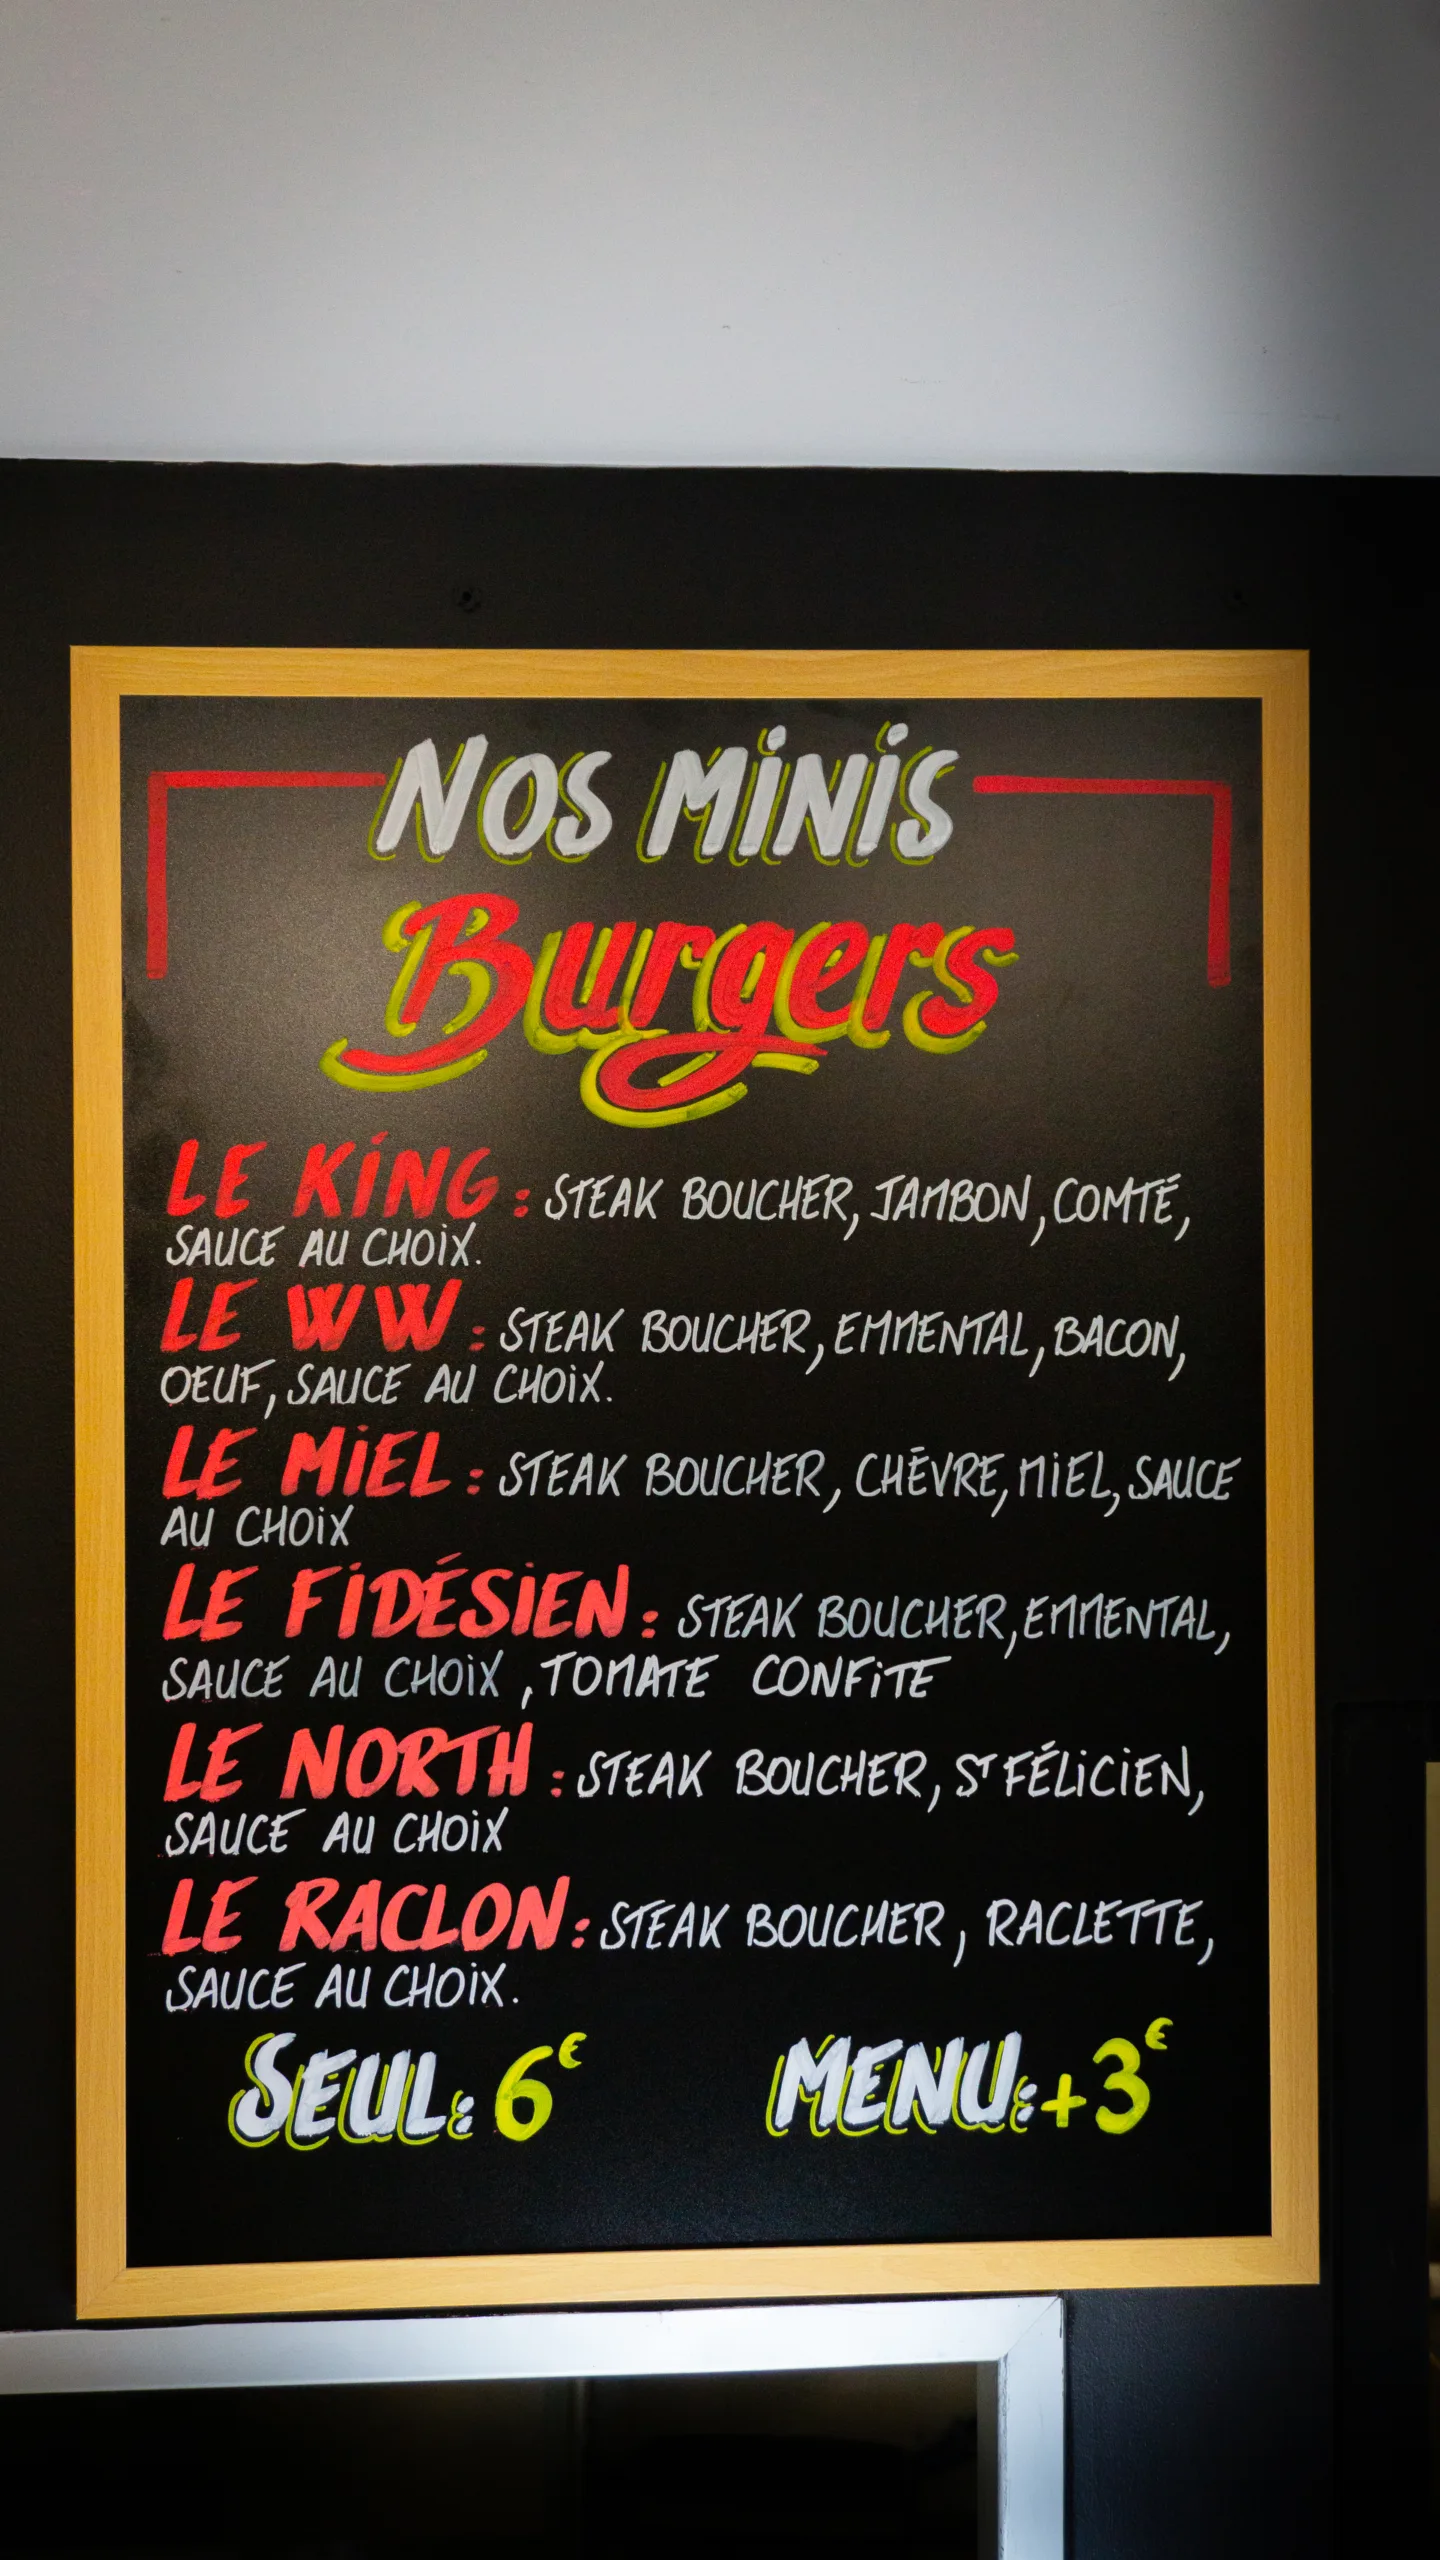 NOS MINIS
Burgers
LE KING : STEAK BOUCHER, JAMBON, COMTÉ,
SAUCE AU CHOIX.
LE WW : STEAK BOUCHER, EMMENTAL, BACON,
OEUF, SAUCE AU CHOIX.
LE MIEL : STEAK BOUCHER, CHÈVRE, MIEL, SAUCE
AU CHOIX
LE FIDÉSIEN : STEAK BOUCHER, EMMENTAL,
SAUCE AU CHOIX, TOMATE CONFITE
LE NORTH : STEAK BOUCHER, ST FÉLICIEN,
SAUCE AU CHOIX
LE RACLON : STEAK BOUCHER, RACLETTE,
SAUCE AU CHOIX.
SEUL : 6€ MENU : +3€